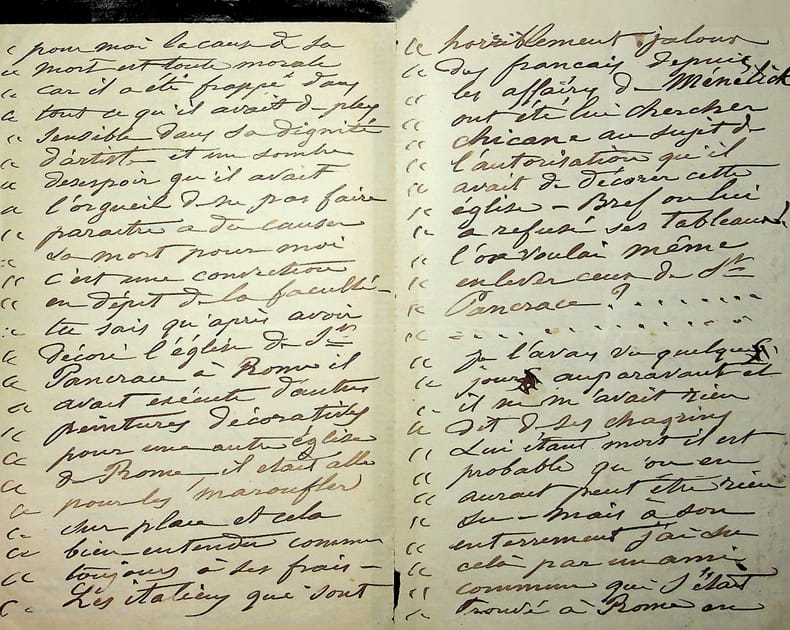 « pour moi la cause de sa
« mort est toute morale
« car il a été frappé dans
« tout ce qu'il avait de plus
« sensible dans sa dignité
« d'artiste et un sombre
« desespoir qu'il avait
« l'orgueil de ne pas faire
« paraitre a du causer
« sa mort pour moi
« c'est une conviction
« en dépit de la faculté -
« tu sais qu'après avoir
« décoré l'église de St
« Pancrace à Rome il
« avait exécuté d'autres
« peintures décoratives
« pour une autre église
« de Rome - il était allé
« pour les maroufler
« sur place et cela
« bien-entendu comme
« toujours à ses frais -
« Les italiens qui sont
« horriblement jaloux
« des francais depuis
« les affaires de Ménélick
« ont été lui chercher
« chicane au sujet de
« l'autorisation qu'il
« avait de décorer cette
« église - Bref on lui
« a refusé ses tableaux,
« l'on voulai même
« enlever ceux de St
« Pancrace ? . . . . . . .
« . . . . . . . . . . . .
« je l'avais vu quelques
« jours auparavant et
« il ne m'avait rien
« dit de ses chagrins
« Lui étant mort il est
« probable qu'on en
« aurait peut être rien
« su - mais à son
« enterrement j'ai su
« celà par un ami
« commun qui s'était
« trouvé à Rome en